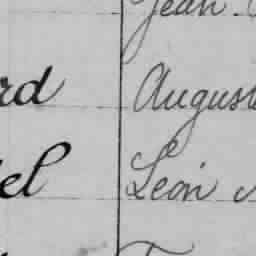 Jean
rd August
el Léon